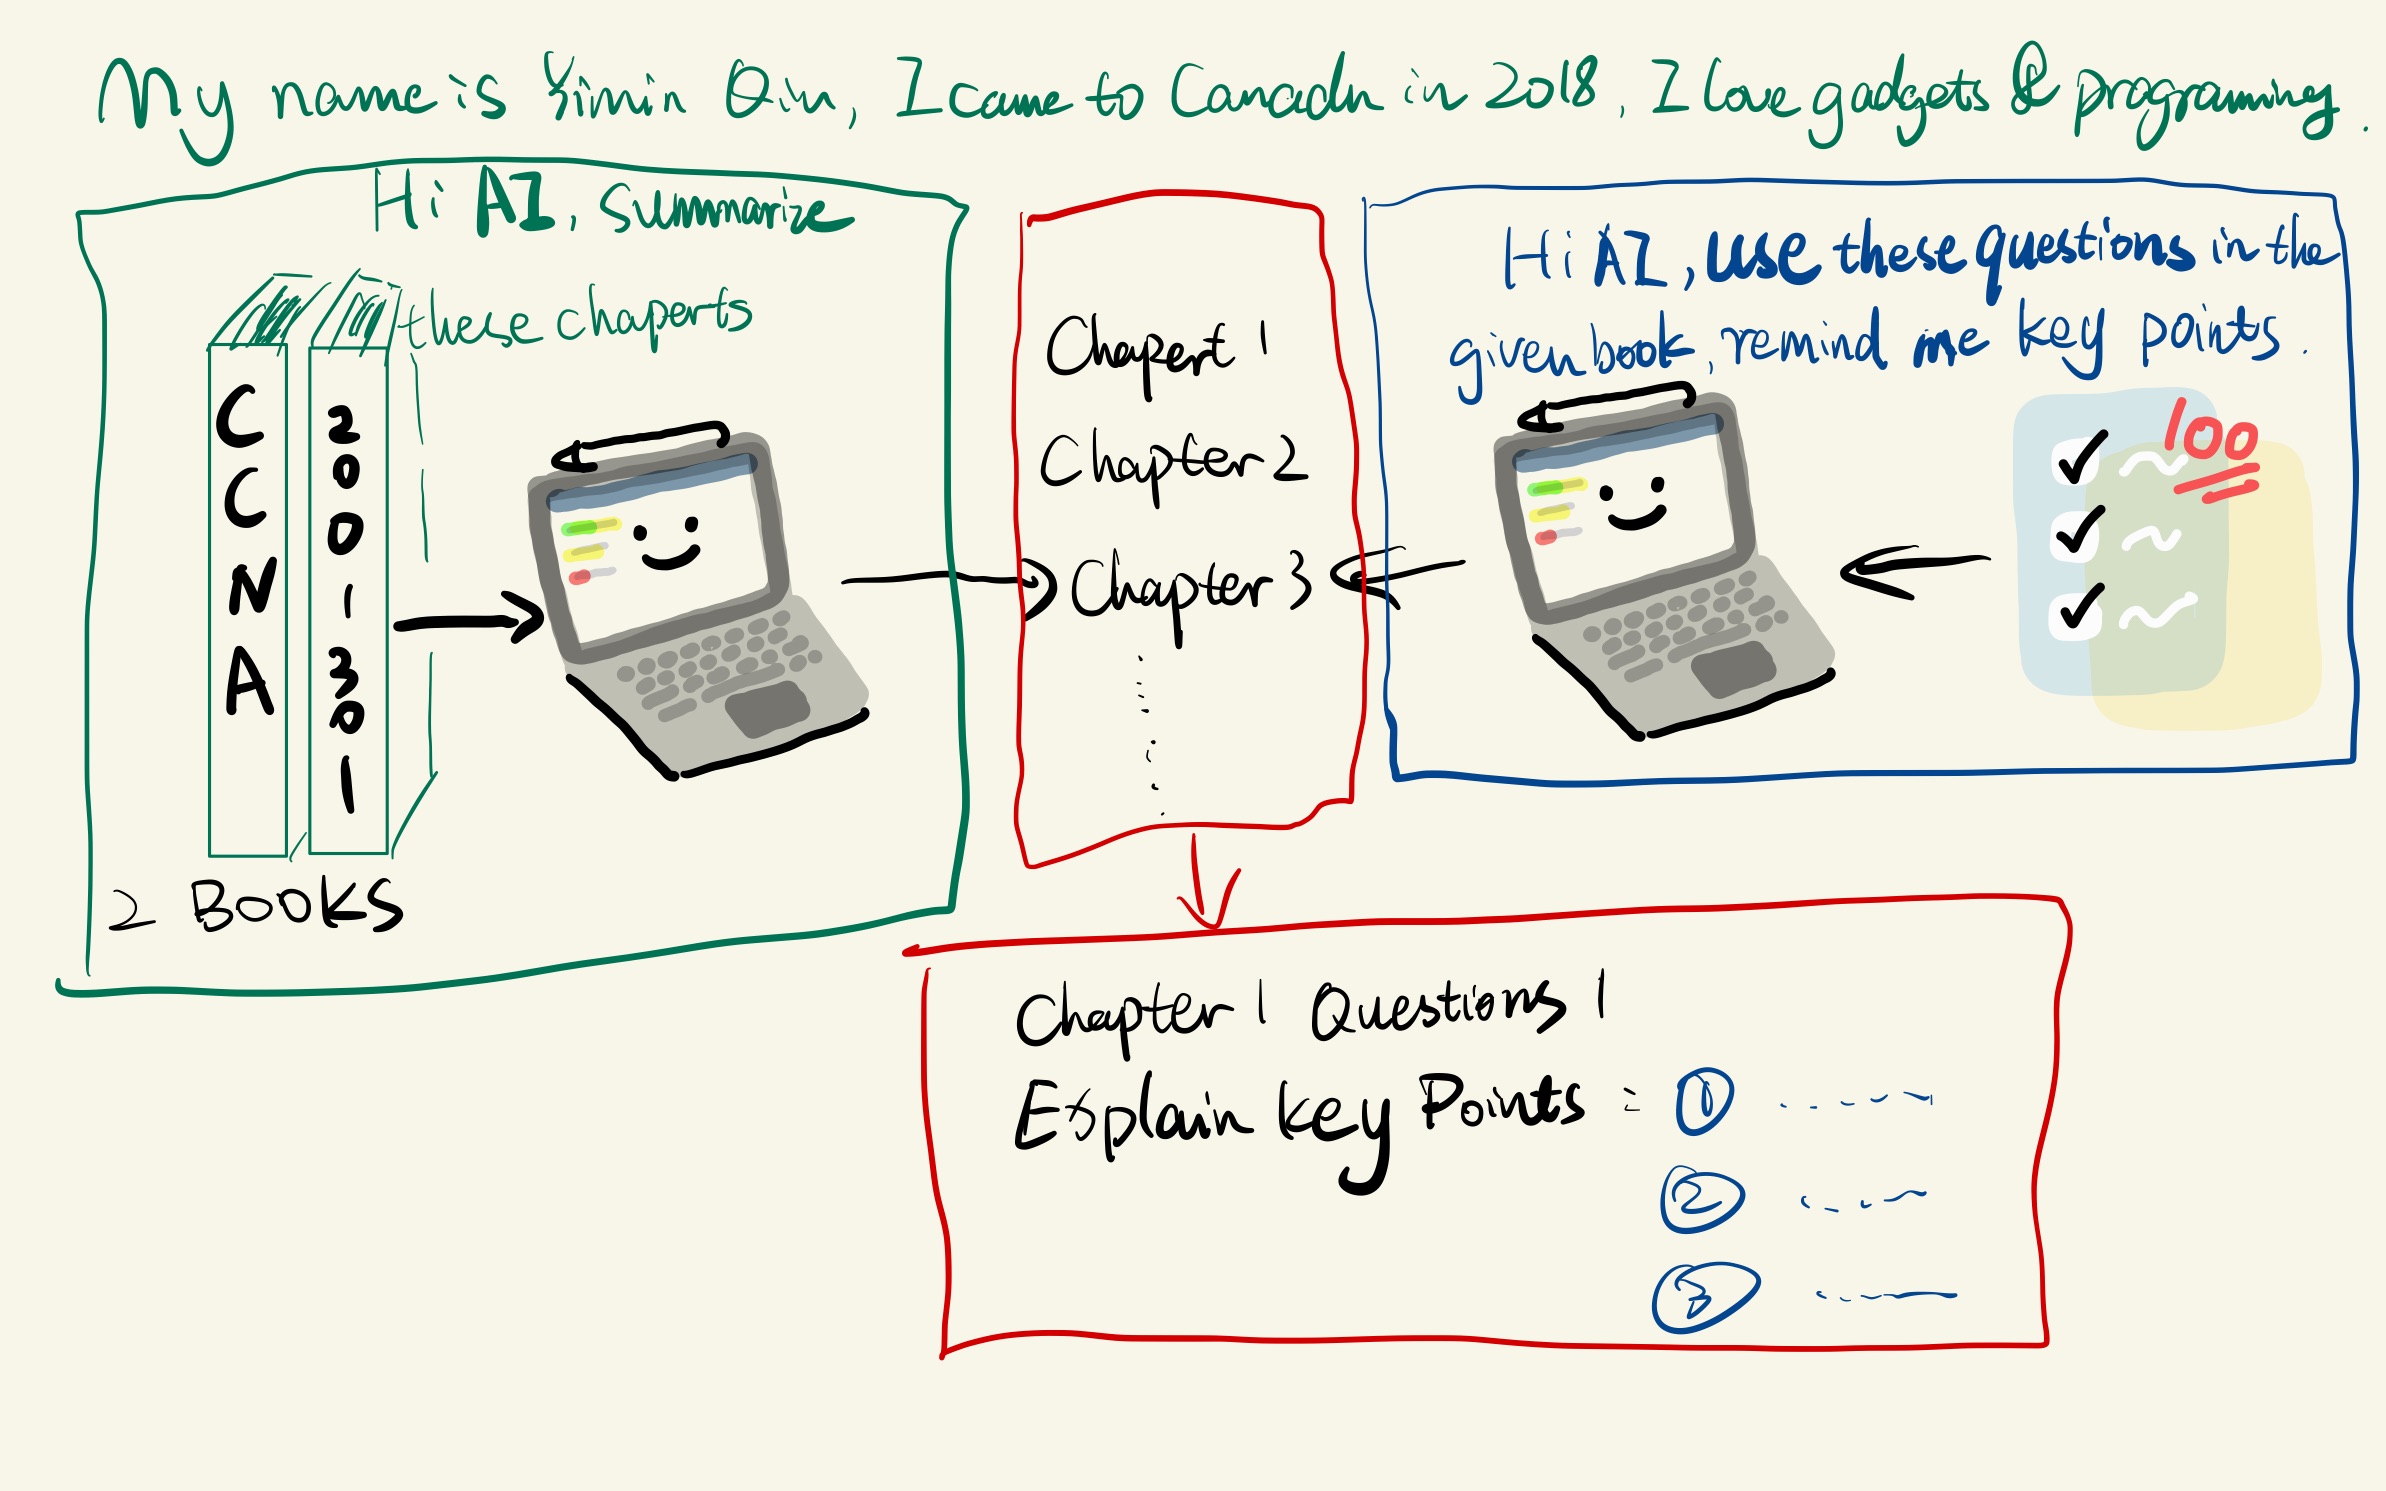 My name is Yimin Qiu, I came to Canada in 2018, I love gadgets & programing.
Hi AI, summarize
these chaperts
CCNA
200-301
2 BOOKS
Chapert 1
Chapter 2
Chapter 3
Hi AI, use these questions in the
given book, remind me key points.
100
Chapter 1 Questions 1
Explain key Points : ① 
②
③